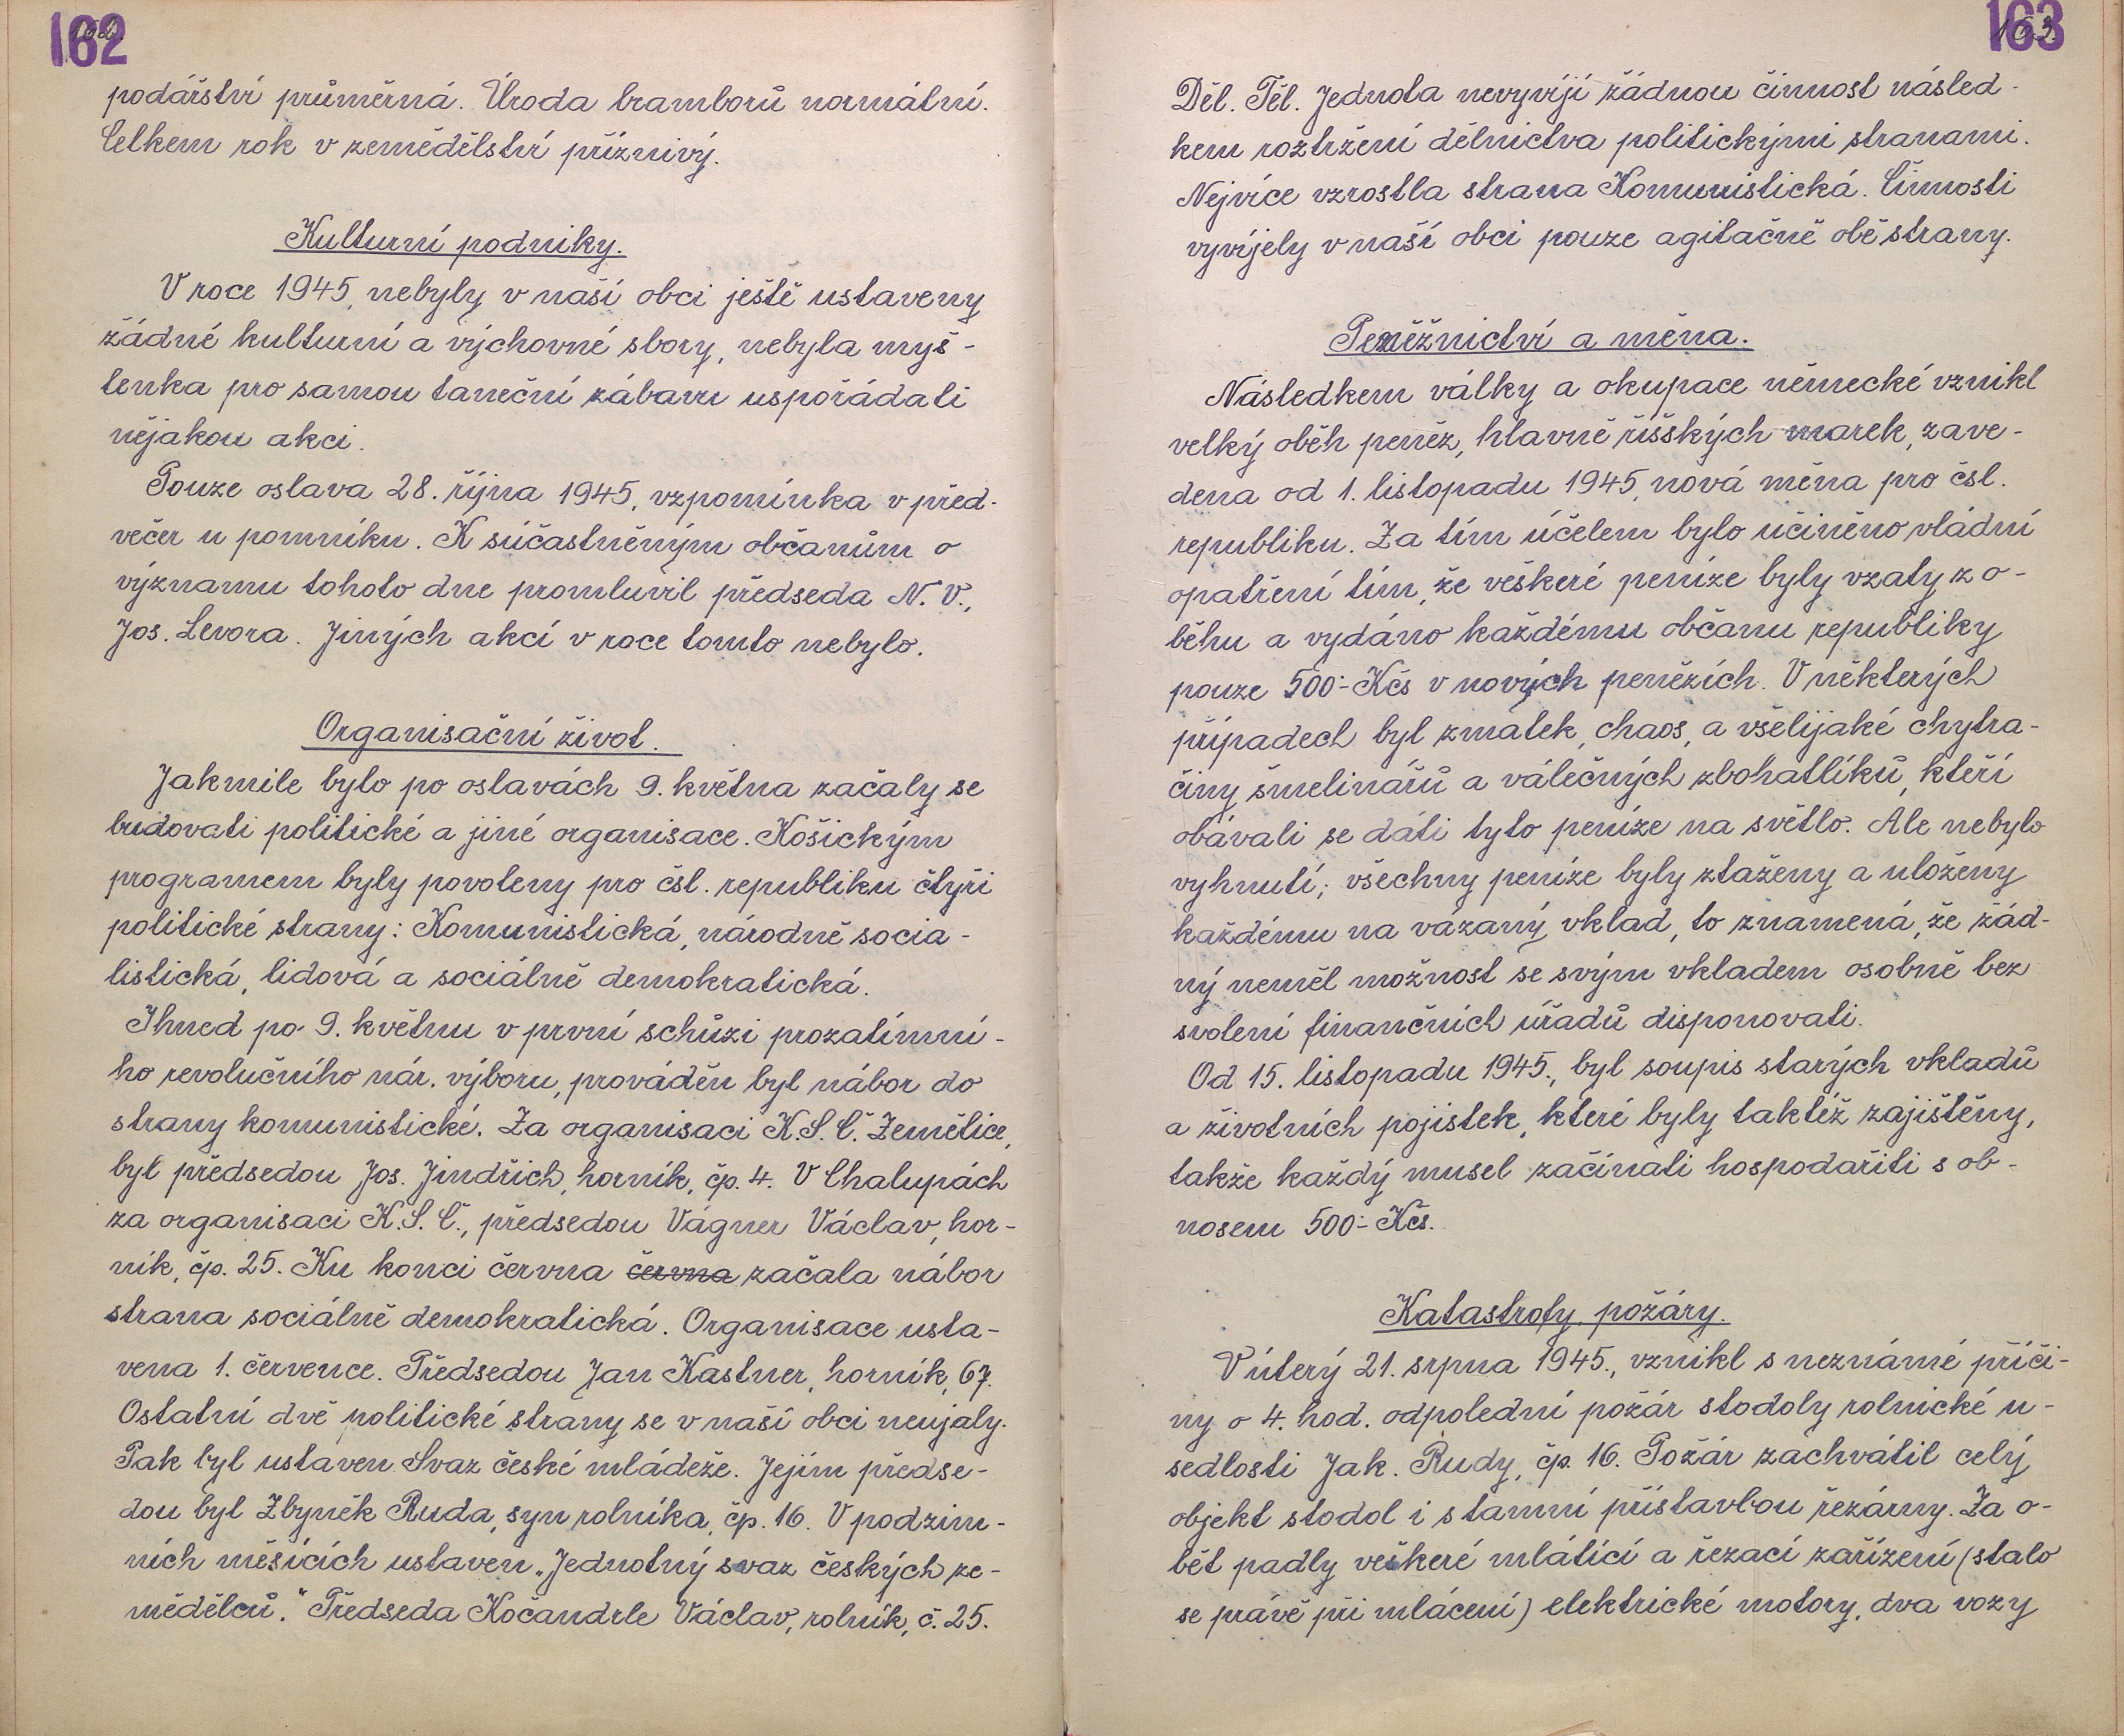 162
podářství průměrná. Úroda bramborů normální.
Celkem rok v zemědělství příznivý.
Kulturní podniky.
V roce 1945, nebyly v naší obci ještě ustaveny
žádné kulturní a výchovné sbory, nebyla myš-
lenka pro samou taneční zábavu uspořádati
nějakou akci.
Pouze oslava 28. října 1945, vzpomínka v před-
večer u pomníku. K súčastněným občanům o
významu tohoto dne promluvil předseda N. V.,
Jos. Levora. Jiných akcí v roce tomto nebylo.
Organisační život.
Jakmile bylo po oslavách 9. května začaly se
budovati politické a jiné organisace. Košickým
programem byly povoleny pro čsl. republiku čtyři
politické strany: Komunistická, národně socia-
listická, lidová a sociálně demokratická.
Ihned po 9. květnu v první schůzi prozatímní-
ho revolučního nár. výboru, prováděn byl nábor do
strany komunistické. Za organisaci K.S.Č. Zemětice,
byl předsedou Jos. Jindřich, horník, čp. 4. V Chalupách
za organisaci K.S.Č., předsedou Vágner Václav, hor-
ník, čp. 25. Ku konci června června začala nábor
strana sociálně demokratická. Organisace usta-
vena 1. července. Předsedou Jan Kastner, horník, 67.
Ostatní dvě politické strany se v naší obci neujaly.
Pak byl ustaven Svaz české mládeže. Jejím předse-
dou byl Zbyněk Ruda, syn rolníka, čp. 16. V podzim-
ních měsících ustaven „Jednotný svaz českých ze-
mědělců." Předseda Kočandrle Václav, rolník, č. 25.
163
Děl. Těl. Jednota nevyvíjí žádnou činnost násled-
kem roztržení dělnictva politickými stranami.
Nejvíce vzrostla strana Komunistická. Činnosti
vyvíjely v naší obci pouze agitačně obě strany.
Peněžnictví a měna.
Následkem války a okupace německé vznikl
velký oběh peněz, hlavně říšských marek, zave-
dena od 1. listopadu 1945, nová měna pro čsl.
republiku. Za tím účelem bylo učiněno vládní
opatření tím, že veškeré peníze byly vzaty z o-
běhu a vydáno každému občanu republiky
pouze 500:- Kčs v nových penězích. V některých
případech byl zmatek, chaos, a všelijaké chytra-
činy šmelinářů a válečných zbohatlíků, kteří
obávali se dáti tyto peníze na světlo. Ale nebylo
vyhnutí; všechny peníze byly ztaženy a uloženy
každému na vázaný vklad, to znamená, že žád-
ný neměl možnost se svým vkladem osobně bez
svolení finančních úřadů disponovati.
Od 15. listopadu 1945., byl soupis starých vkladů
a životních pojistek, které byly taktéž zajištěny,
takže každý musel začínati hospodařiti s ob-
nosem 500:- Kčs.
Katastrofy, požáry.
V úterý 21. srpna 1945., vznikl s neznámé příči-
ny o 4. hod. odpolední požár stodoly rolnické u-
sedlosti Jak. Rudy, čp. 16. Požár zachvátil celý
objekt stodol i s tamní přístavbou řezárny. Za o-
běť padly veškeré mlátící a řezací zařízení (stalo
se právě při mlácení) elektrické motory, dva vozy